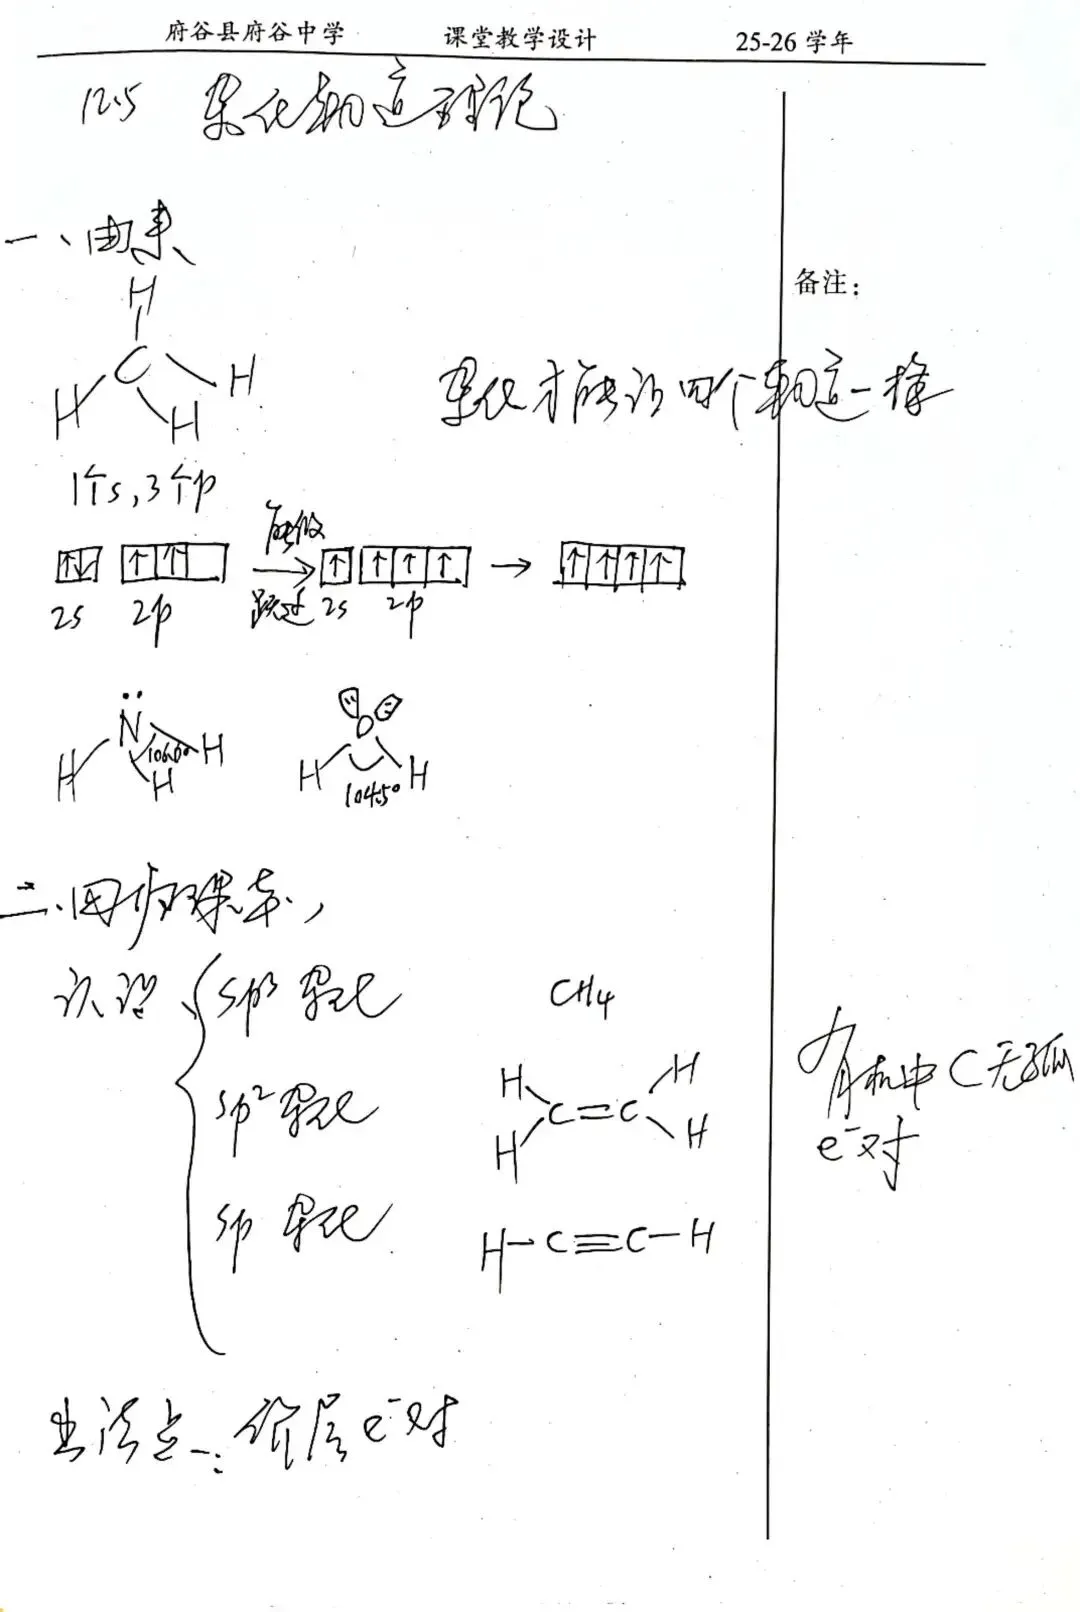 府谷县府谷中学 课堂教学设计 25-26 学年
12.5 杂化轨道理论
一、由来
备注：
H
C
H H
H
杂化才能认四个轨道一样
1个s,3个p
能级
↑↓ ↑ ↑ → ↑ ↑ ↑ ↑ → ↑ ↑ ↑ ↑
2s 2p 跃迁 2s 2p
N O
H H H H H
104.5°
二、回归课本,
认识 sp³ 杂化 CH4
有机中C无孤
e⁻对
sp² 杂化
H H
C=C
H H
sp 杂化 H-C≡C-H
出法点一: 价层e⁻对